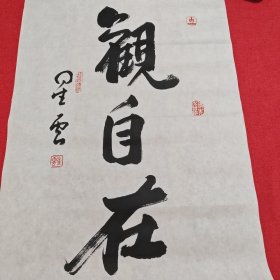 観自在
星雲